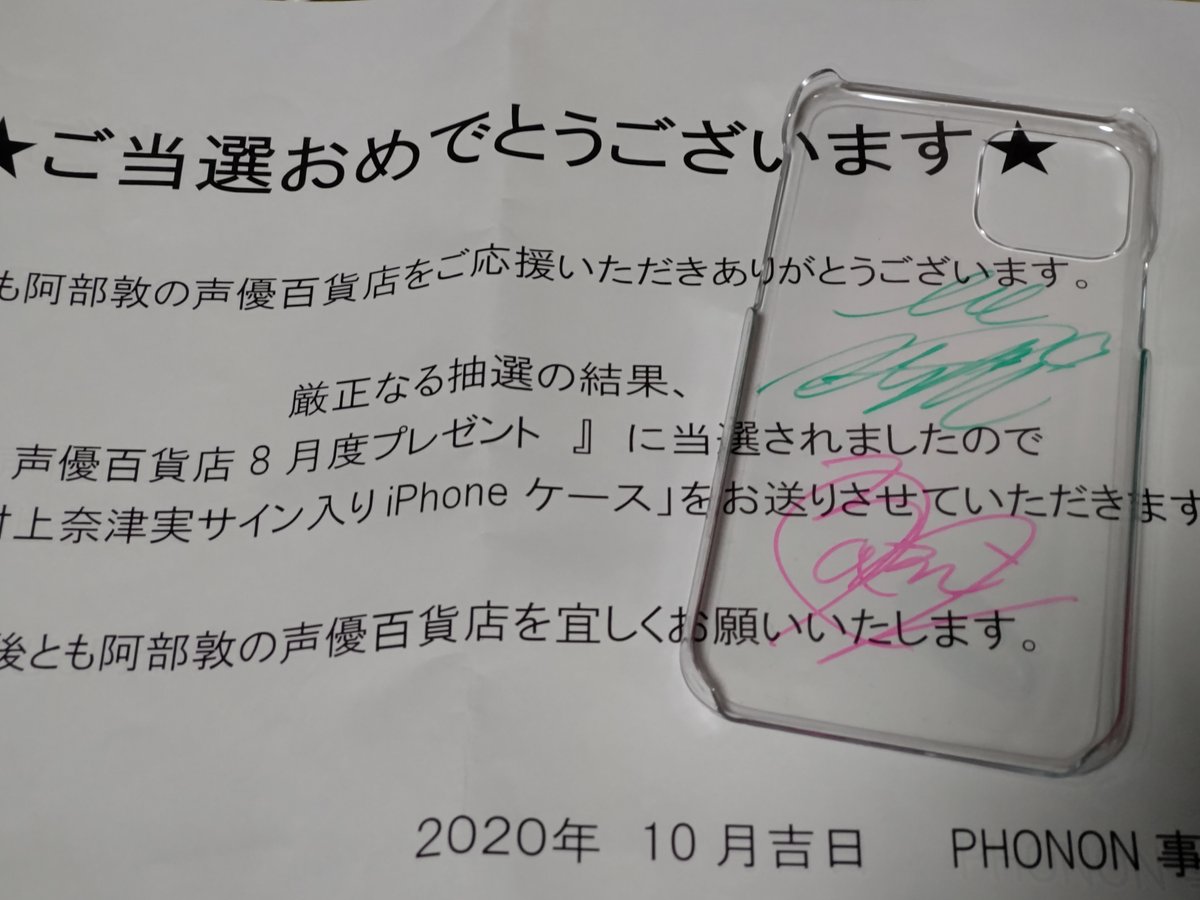 ★ご当選おめでとうございます★
も阿部敦の声優百貨店をご応援いただきありがとうございます。
厳正なる抽選の結果、
声優百貨店8月度プレゼント 』 に当選されましたので
村上奈津実サイン入りiPhoneケース」をお送りさせていただきます
後とも阿部敦の声優百貨店を宜しくお願いいたします。
2020年 10月吉日 PHONON 事